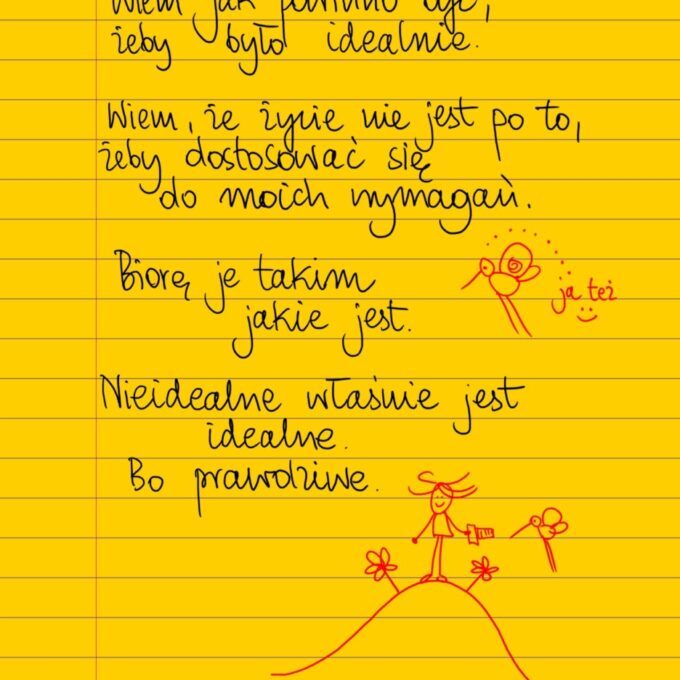 Wiem jak powinno
żeby było idealnie.
Wiem, że życie nie jest po to,
żeby dostosować się
do moich wymagań.
Biorę je takim
jakie jest.
ja też
Nieidealne właśnie jest
idealne.
Bo prawdziwe.